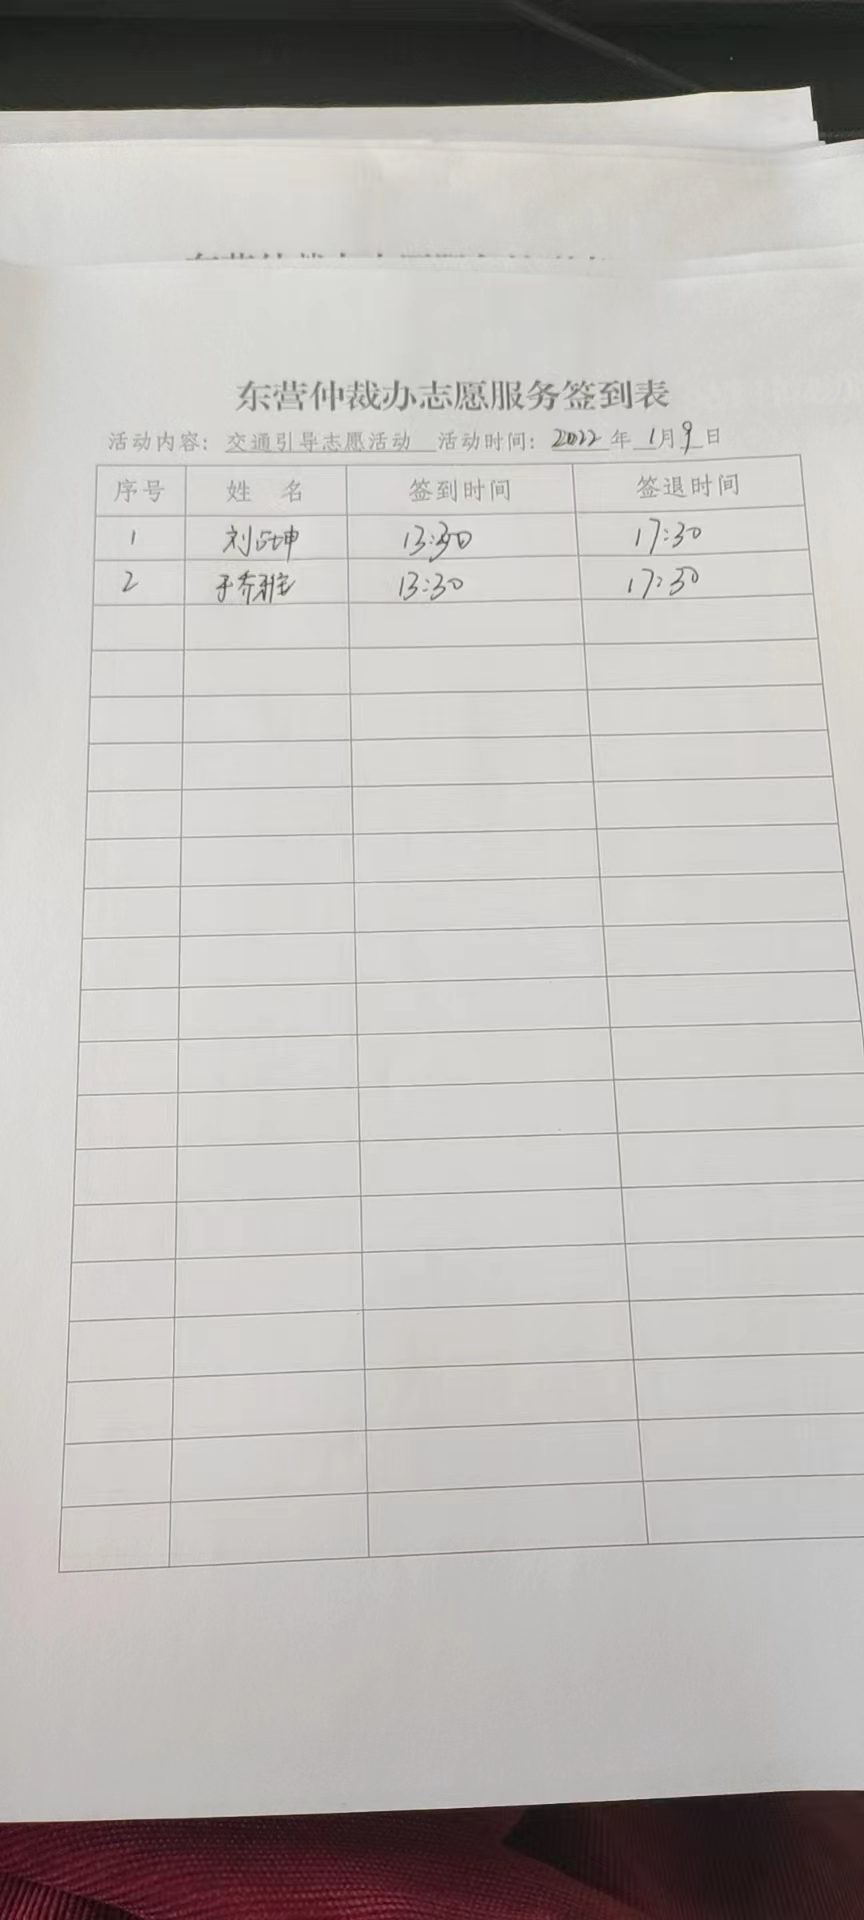 东营仲裁办志愿服务签到表
活动内容：交通引导志愿活动 活动时间：2022年1月9日
序号 姓 名 签到时间 签退时间
1 刘正坤 13:30 17:30
2 于乔雅 13:30 17:30